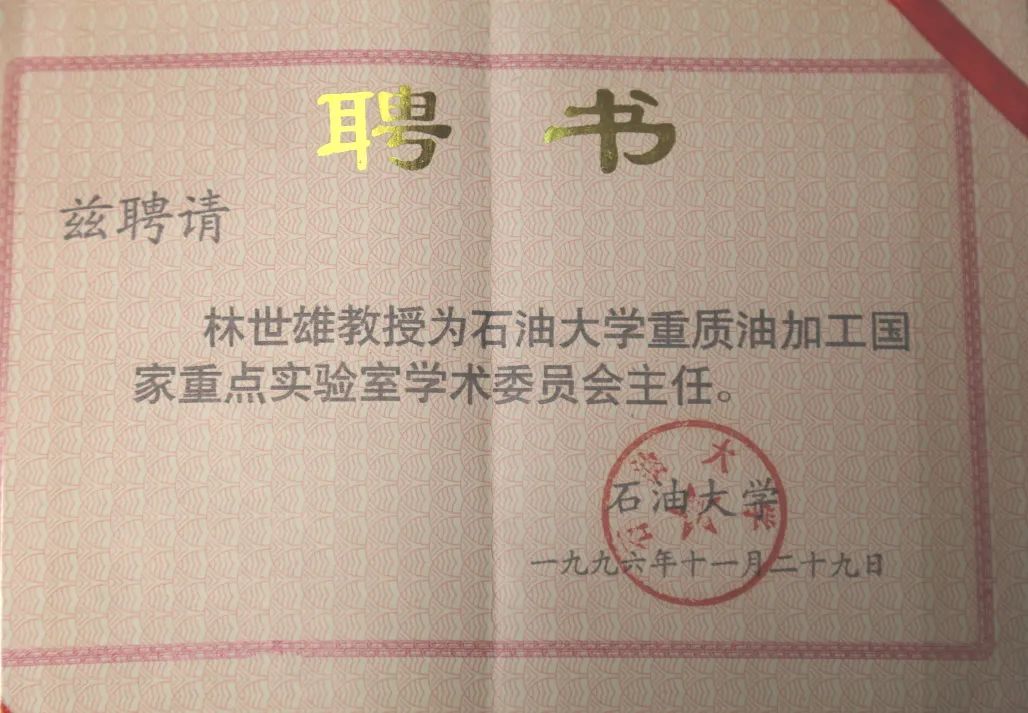 聘书
兹聘请
林世雄教授为石油大学重质油加工国
家重点实验室学术委员会主任。
石油大学
石油大学
一九九六年十一月二十九日